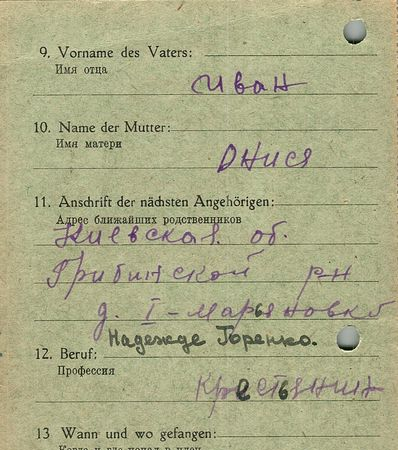 9. Vorname des Vaters:
Имя отца
Иван
10. Name der Mutter:
Имя матери
Онися
11. Anschrift der nächsten Angehörigen:
Адрес ближайших родственников
Киевская об.
Грибинской р-н
д. I-марьяновка
Надежде Горенко.
12. Beruf:
Профессия
Крестьянин
13 Wann und wo gefangen: